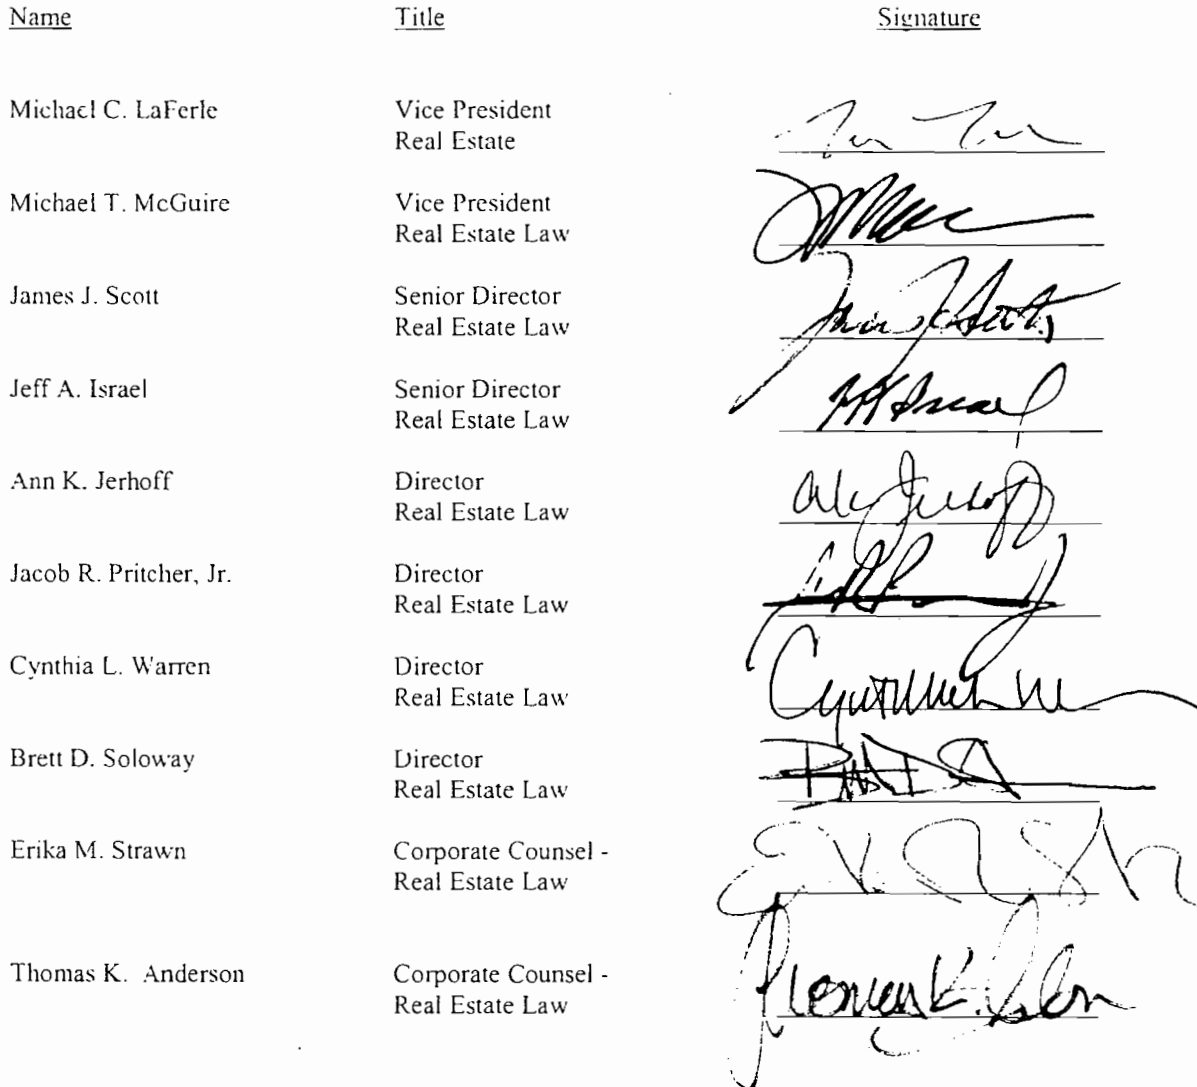 Name Title Signature
Michael C. LaFerle Vice President
Real Estate
Michael T. McGuire Vice President
Real Estate Law
James J. Scott Senior Director
Real Estate Law
Jeff A. Israel Senior Director
Real Estate Law
Ann K. Jerhoff Director
Real Estate Law
Jacob R. Pritcher, Jr. Director
Real Estate Law
Cynthia L. Warren Director
Real Estate Law
Brett D. Soloway Director
Real Estate Law
Erika M. Strawn Corporate Counsel -
Real Estate Law
Thomas K. Anderson Corporate Counsel -
Real Estate Law